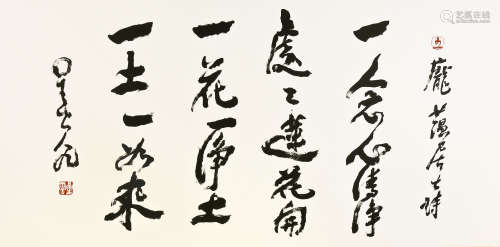 龐蘊居士詩
一念心清淨
處々蓮花開
一花一淨土
一土一如來
星雲